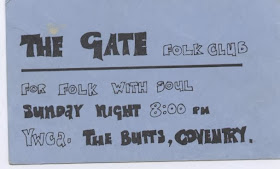 THE GATE FOLK CLUB
FOR FOLK WITH SOUL
SUNDAY NIGHT 8:00 PM
YWCA. THE BUTTS, COVENTRY.